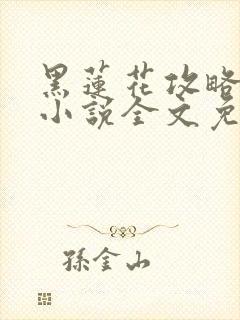 黑蓮花攻略
小說全文免
孫金山